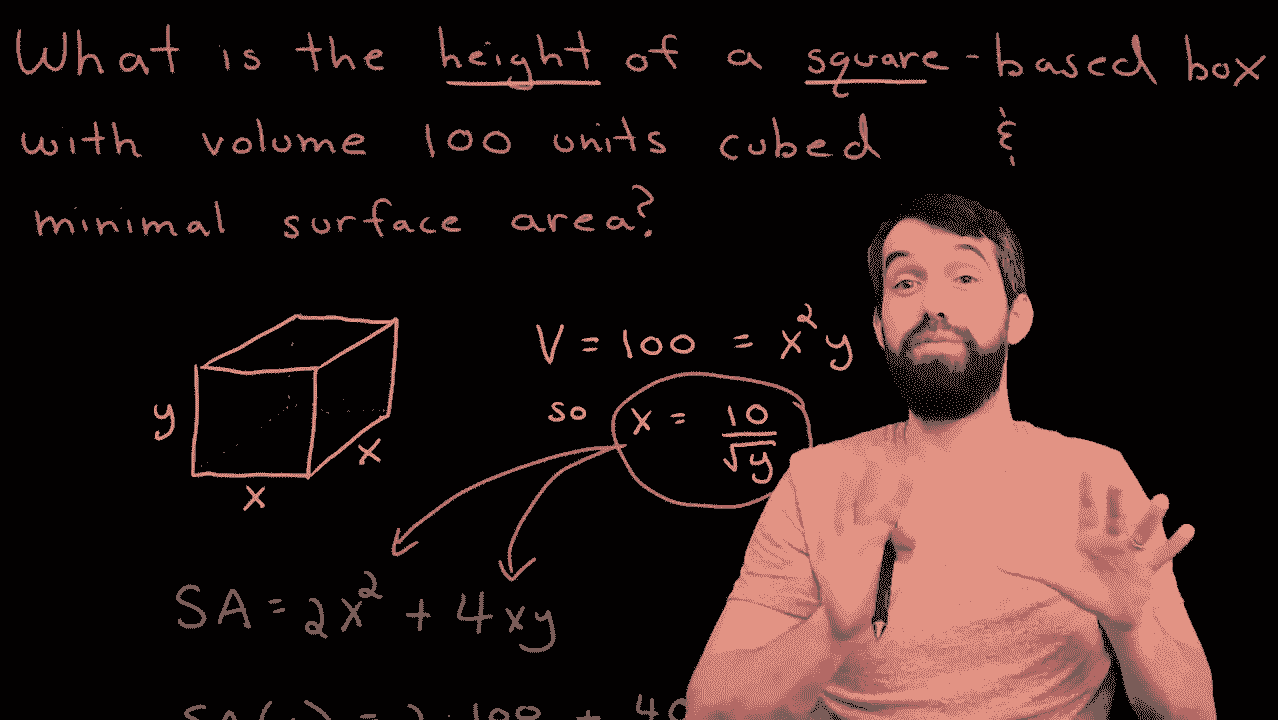 What is the height of a square-based box
with volume 100 units cubed &
minimal surface area?
V = 100 = x²y
so x = 10/√y
y
x
x
SA = 2x² + 4xy
= 2·100 + 40